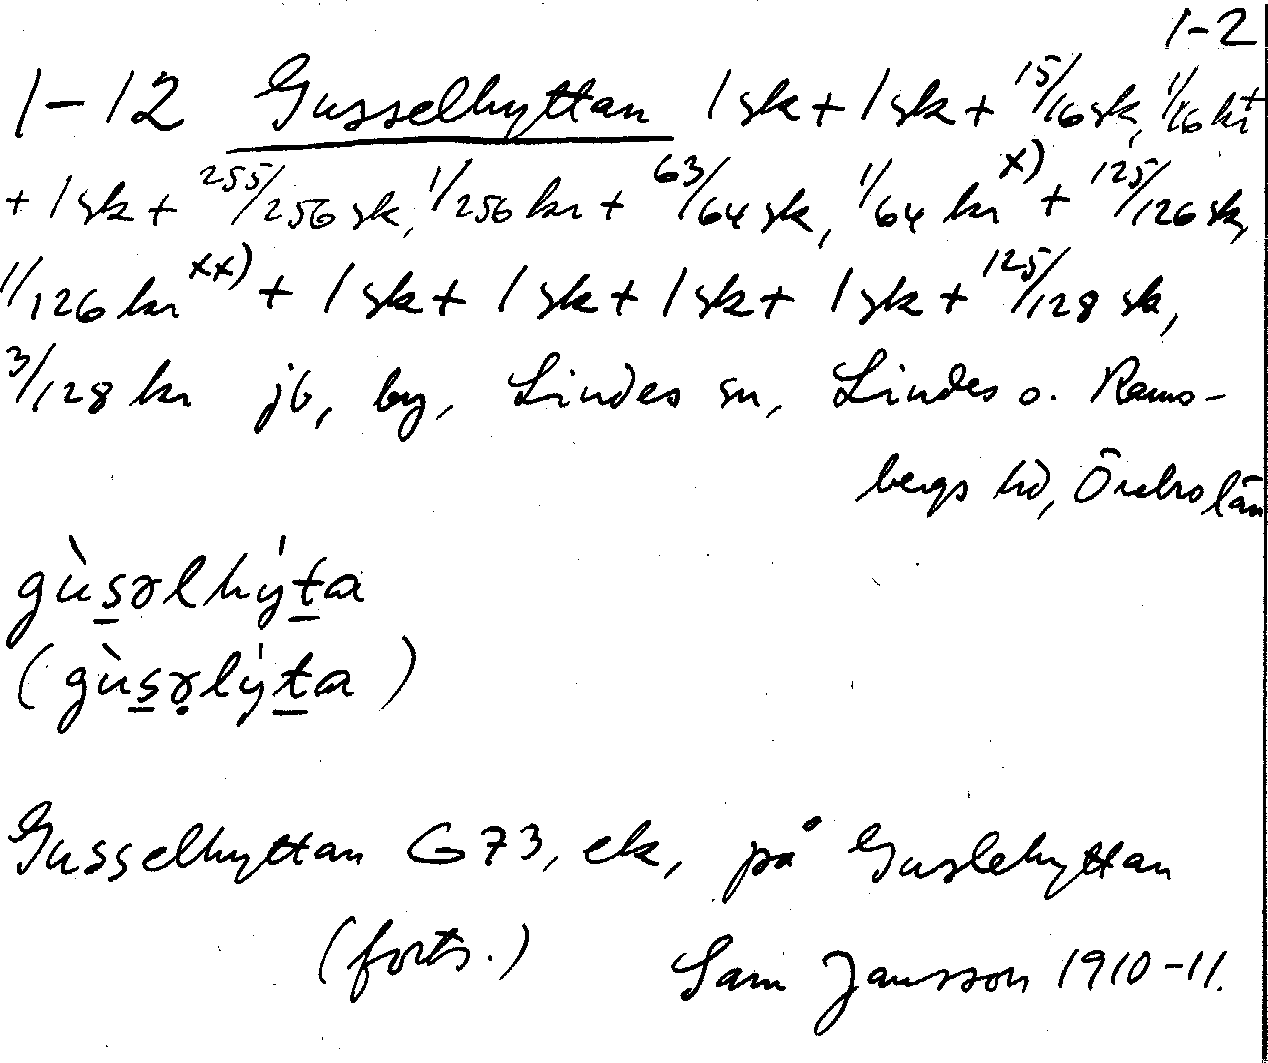 1-2
1-12 Gusselhyttan 1 sk + 1 sk + 15/16 sk, 1/16 kr +
+ 1 sk + 255/256 sk, 1/256 kr + 63/64 sk, 1/64 kr x) + 125/126 sk,
1/126 kr xx) + 1 sk + 1 sk + 1 sk + 1 sk + 125/128 sk,
3/128 kr jb, by, Lindes sn, Lindes o. Rams-
bergs hd, Örebro län
gùs̲əlhý́t̲a
(gùs̲ə̣lý́t̲a)
Gusselhyttan G73, ek, på Guslehyttan
(forts.) Sam Jansson 1910-11.